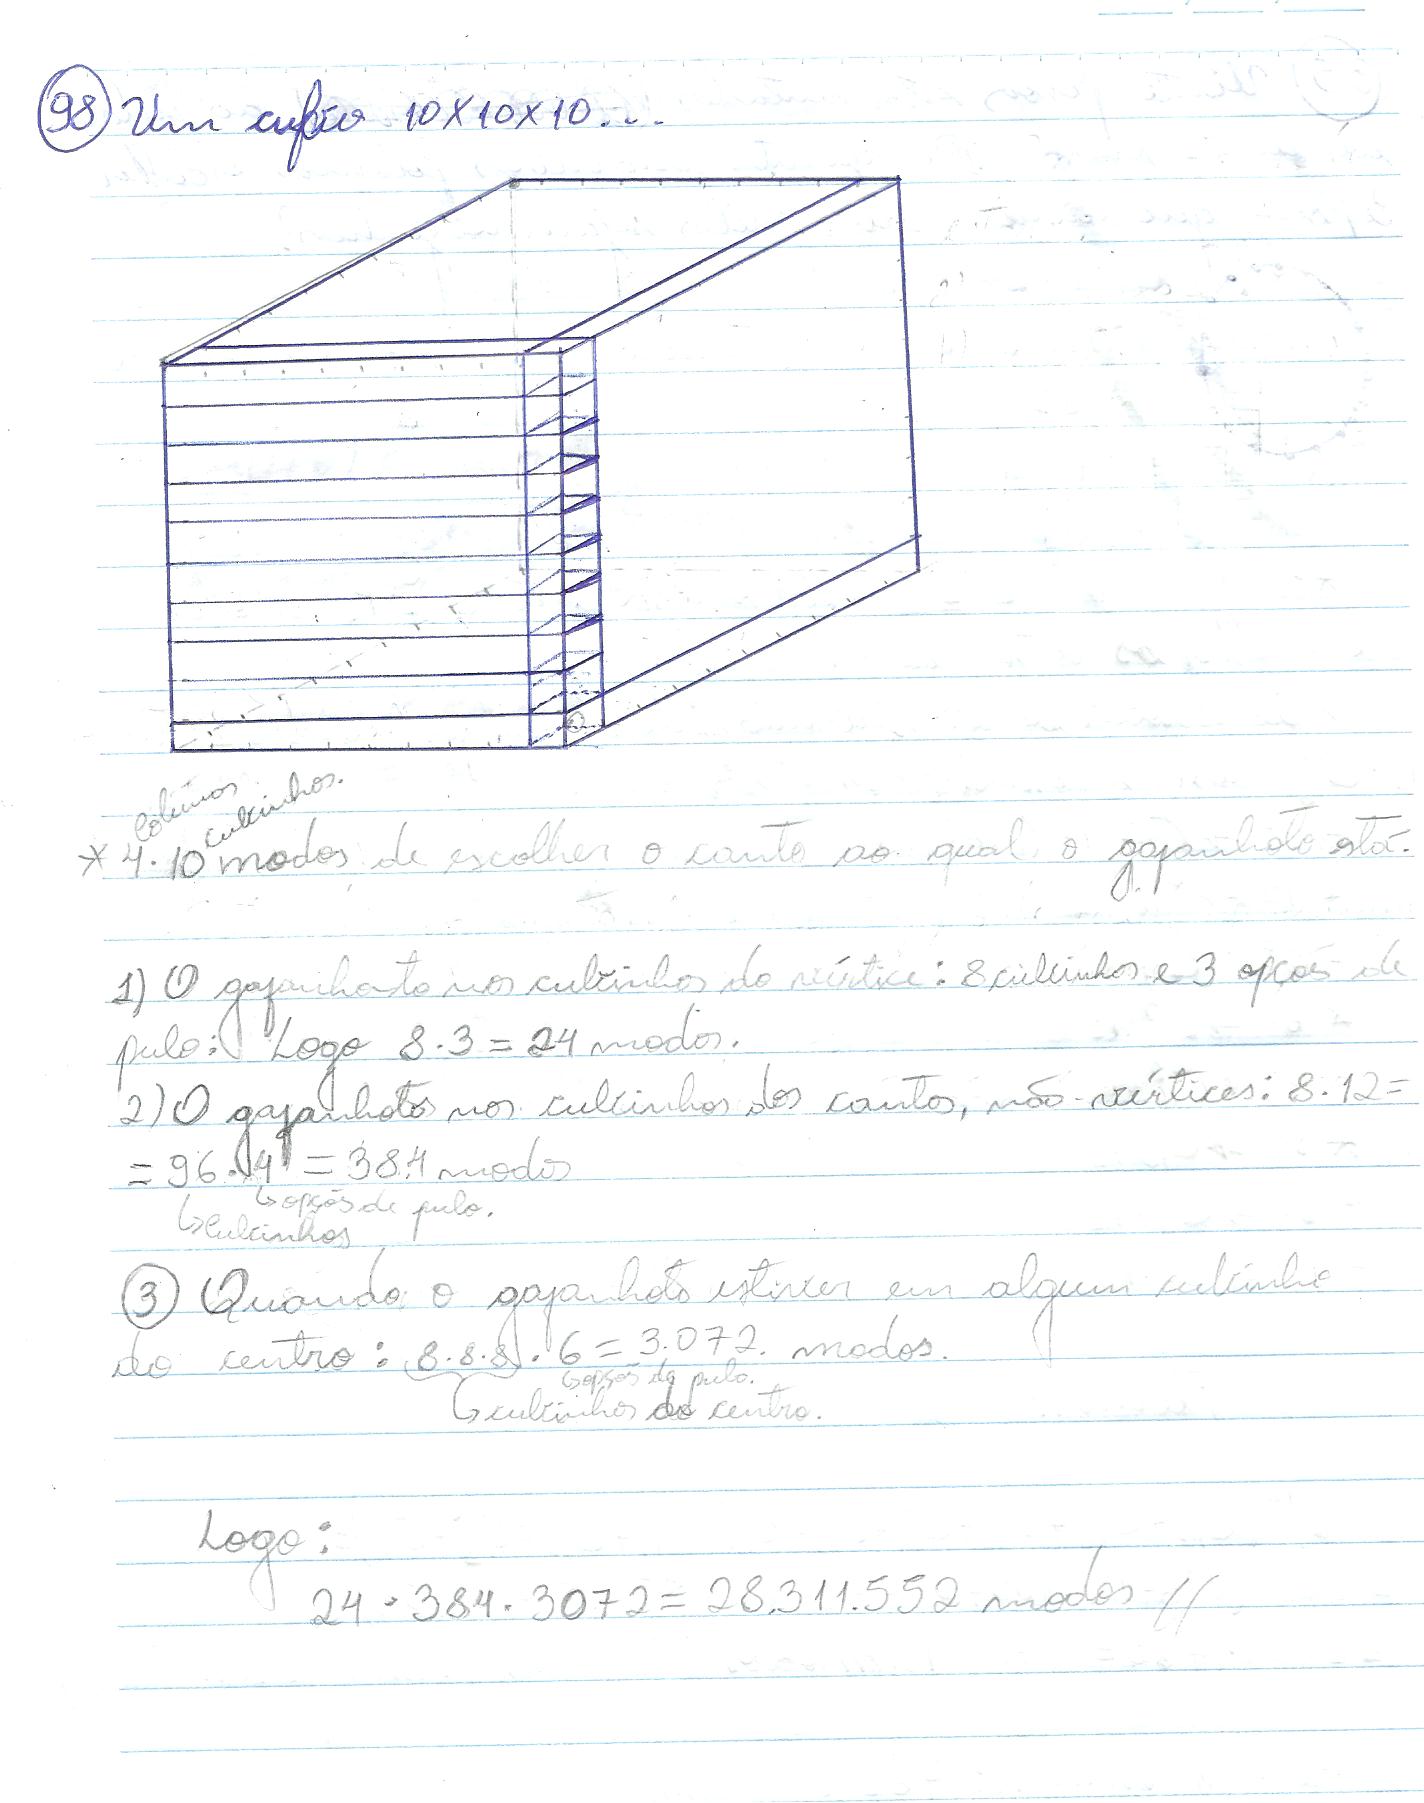 98 Um cubão 10X10X10...
colunas
cubinhos.
* 4·10 modos de escolher o canto ao qual o gafanhoto está.
1) O gafanhoto nos cubinhos do vértice: 8 cubinhos e 3 opções de
pulo: Logo 8·3 = 24 modos.
2) O gafanhoto nos cubinhos dos cantos, não-vértices: 8·12=
= 96·4 = 384 modos
↳ opções de pulo.
↳ Cubinhos
3 Quando o gafanhoto estiver em algum cubinho
do centro: 8·8·8·6 = 3.072 modos.
↳ opções de pulo.
↳ cubinhos do centro.
Logo:
24·384·3072 = 28.311.552 modos //